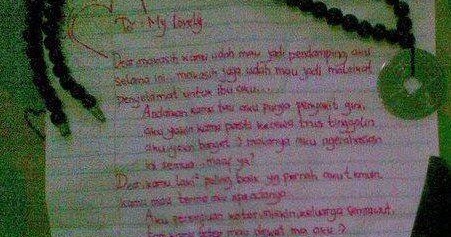 To : My lovely
Dear makasih kamu udah mau jadi pendamping aku
Selama ini. makasih juga udah mau jadi malaikat
Penyelamat untuk ibu aku...
Andaikan kamu tau aku punya penyakit gini,
aku yakin kamu pasti kecewa trus tinggalin
aku. :) makanya aku ngerahasiain
ini semua... maaf ya!
Dear, kamu laki" paling baik yg pernah aku temuin,
kamu mau terima aku apa adanya
Aku perempuan kotor, miskin, keluarga
kamu mau aku :)